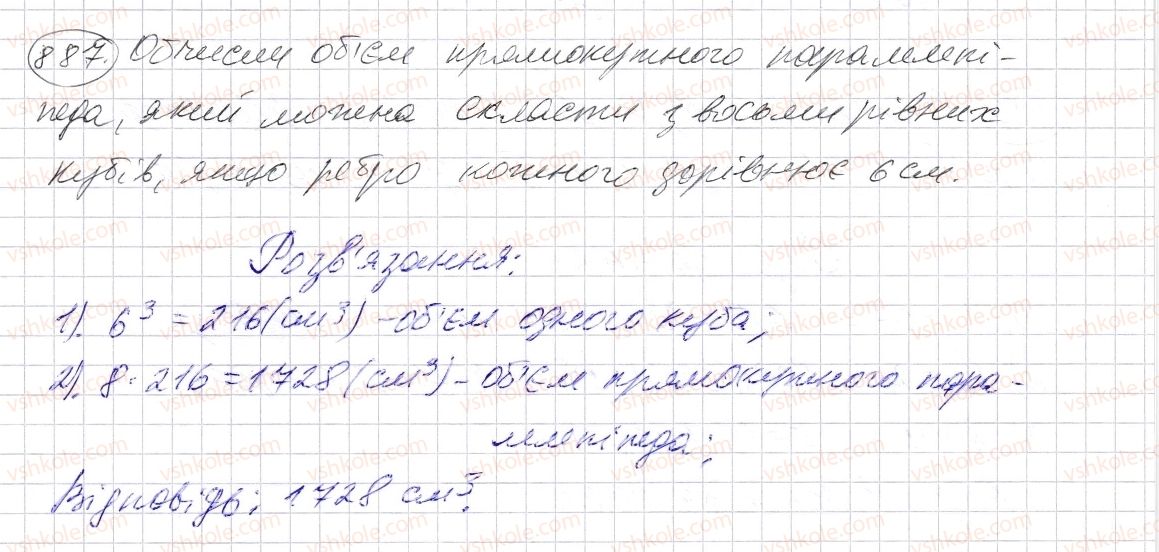 887. Обчисли об'єм прямокутного паралелепі-
педа, який можна скласти з восьми рівних
кубів, якщо ребро кожного дорівнює 6 см.
Розв'язання:
1). 6³ = 216 (см³) - об'єм одного куба;
2). 8 · 216 = 1728 (см³) - об'єм прямокутного пара-
лелепіпеда;
Відповідь: 1728 см³.
vshkole.com